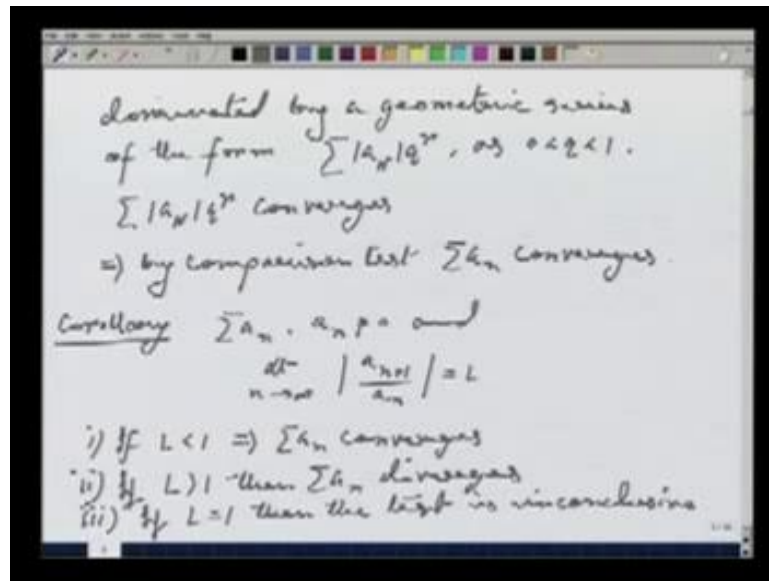 dominated by a geometric series
of the form ∑|a_N|q^n, as 0<q<1.
∑|a_N|q^n converges
=) by comparison test ∑a_n converges.
Corollary ∑a_n. a_n > 0 and
lt n→∞ |a_{n+1}/a_n| = L
i) If L<1 =) ∑a_n converges
ii) If L>1 then ∑a_n diverges
iii) If L=1 then the test is inconclusive